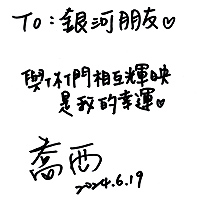 TO:銀河朋友♡
與你們相互輝映
是我的幸運♡
喬西
2024.6.19